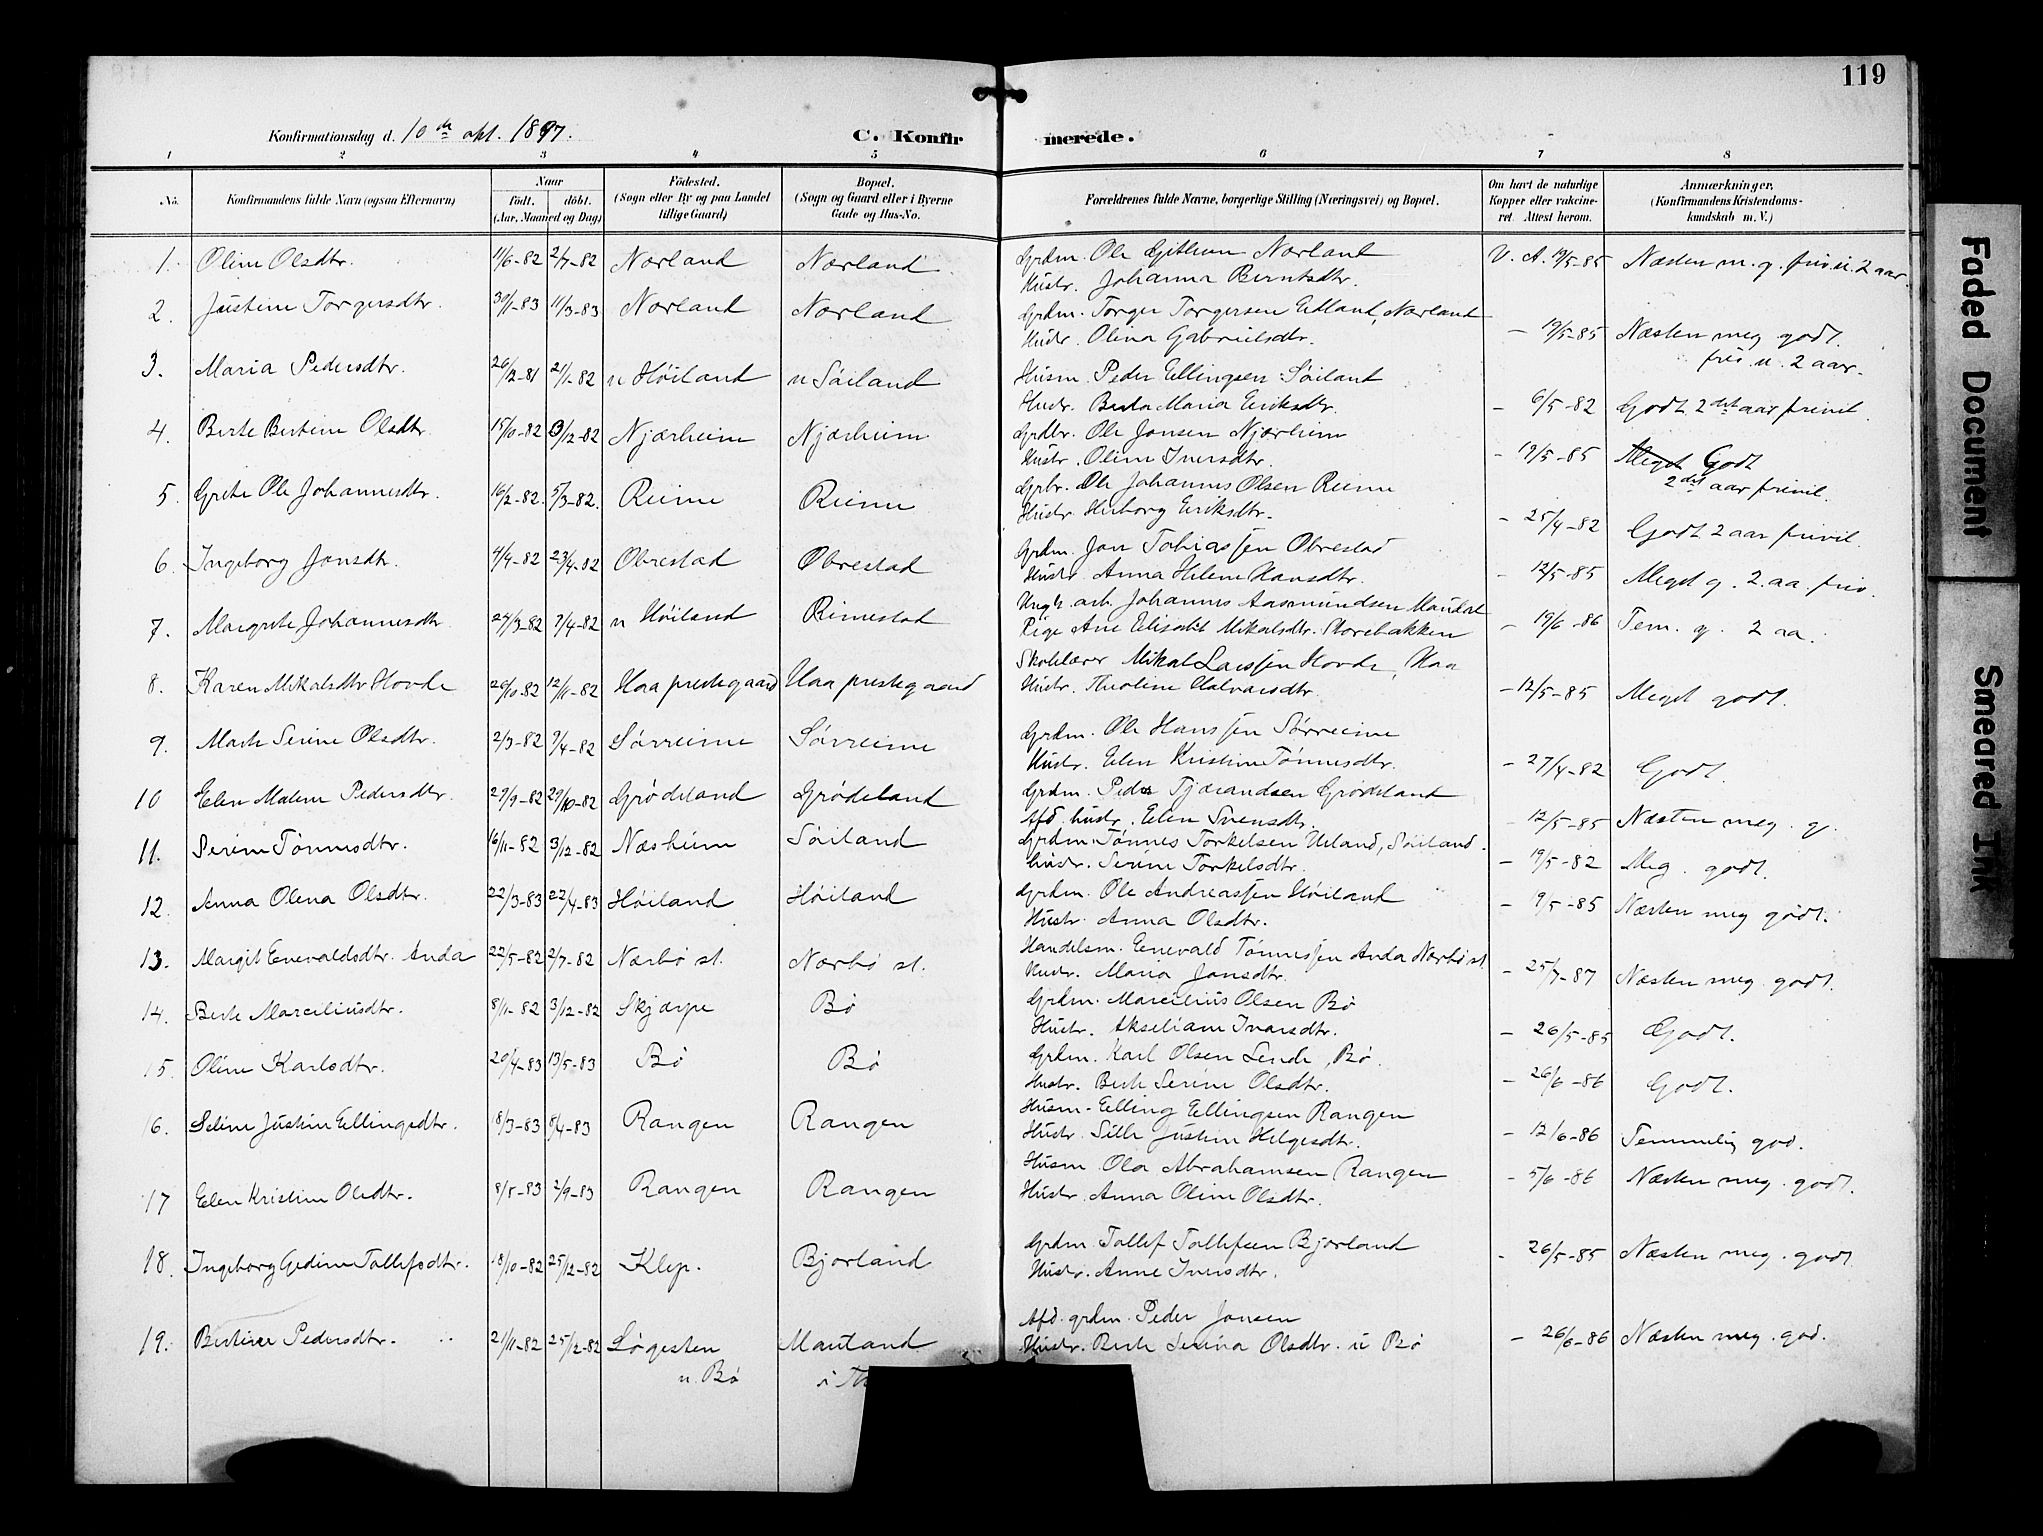 119
Konfirmationsdag d. 10de okt. 1897.
C. Konfirmerede.
1 2 3 4 5 6 7 8
No.
Konfirmandens fulde Navn (ogsaa Efternavn)
Naar
født. døbt.
(Aar, Maaned og Dag)
Fødested.
(Sogn eller By og paa Landet
tillige Gaard)
Bopæl.
(Sogn og Gaard eller i Byerne
Gade og Hus-No.
Forældrenes fulde Navne, borgerlige Stilling (Næringsvei) og Bopæl.
Om havt de naturlige
Kopper eller vakcine-
ret. Attest herom.
Anmærkninger,
(Konfirmandens Kristendoms-
kundskab m. V.)
1. Oline Olsdtr. 11/6-82 2/7-82 Nærland Nærland Grdm. Ole Gitlesen Nærland
Hustr. Johanna Berntsdtr. V. A. 19/5-85 Næsten m. g. friv. u. 2 aar.
2. Justine Torgersdtr. 30/1-83 11/3-83 Nærland Nærland Grdm. Torger Torgersen Edland, Nærland
Hustr. Olina Gabrielsdtr. - 19/5-85 Næsten meg godt.
friv. u. 2 aar.
3. Maria Pedersdtr. 26/12-81 21/1-82 u Høiland u Søiland Husm. Peder Ellingsen Søiland
Hustr. Berta Maria Eriksdtr. - 6/5-82 Godt 2det aar frivil.
4. Berte Bertine Olsdtr. 15/10-82 3/12-82 Njærheim Njærheim Grdbr. Ole Jonsen Njærheim
Hustr. Oline Iversdtr. - 19/5-85 Meget Godt
2det aar frivil.
5. Grete Ole Johannesdtr. 16/2-82. 5/3-82. Reime Reime Grbr. Ole Johannes Olsen Reime
Hustr. Herborg Eriksdtr. - 25/4-82 Godt 2 aar frivil.
6. Ingeborg Jonsdtr. 4/4-82 23/4-82 Obrestad Obrestad Grdm. Jon Tobiassen Obrestad
Hustr. Anna Helene Hansdtr. - 12/5-85 Meget g. 2. aa. friv.
7. Margrete Johannesdtr. 24/3-82 9/4-82 u Høiland Rimestad Ungk. arb. Johannes Aasmundsen Maudal
Pige Ane Elisabet Mikalsdtr. Storebakken - 19/6-86 Tem. g. 2 aa.
8. Karen Mikalsdtr Hovde 26/10-82 12/11-82 Haa prestegaard Haa prestegaard Skolelærer Mikal Larssen Hovde, Haa
Hustr. Theoline Halvarsdtr. - 12/5-85 Meget godt.
9. Marte Serine Olsdtr. 2/3-82 9/4-82 Sørreime Sørreime Grdm. Ole Hanssen Sørreime
Hustr. Elen Kristine Tønnesdtr. - 27/4-82 Godt.
10 Elen Malene Pedersdtr. 27/9-82 29/10-82 Grødeland Grødeland Grdm. Peder Tjærandsen Grødeland
Afd. hustr. Elen Svensdtr. - 12/5-85 Næsten meg. g.
11. Serine Tønnesdtr. 16/11-82 3/12-82 Næsheim Søiland Grdm. Tønnes Torkelsen Ueland, Søiland.
hustr. Serine Torkelsdtr. - 19/5-82 Meg. godt.
12. Anna Olena Olsdtr. 22/3-83 22/4-83 Høiland Høiland Grdm. Ole Andreassen Høiland
Hustr. Anna Olsdtr. - 9/5-85 Næsten meg godt.
13. Margit Enevaldsdtr. Anda 22/5-82 2/7-82 Nærbø st. Nærbø st. Handelsm. Enevald Tønnessen Anda Nærbø st.
Hustr. Maria Jonsdtr. - 25/7-87 Næsten meg. godt.
14. Berte Marceliusdtr. 8/11-82 3/12-82 Skjærpe Bø Grdm. Marcelius Olsen Bø
Hustr. Akseliane Ivarsdtr. - 26/5-85 Godt.
15. Oline Karlsdtr. 20/4-83 13/5-83 Bø Bø Grdm. Karl Olsen Lende, Bø.
Hustr. Berte Serine Olsdtr. - 26/6-86 Godt.
16. Seline Justine Ellingsdtr. 18/3-83 8/4-83 Rangen Rangen Husm. Elling Ellingsen Rangen
Hustr. Sille Justine Helgesdtr. - 12/6-86 Temmelig god.
17 Elen Kristine Olsdtr. 8/8-83 2/9-83 Rangen Rangen Husm Ola Abrahamsen Rangen
Hustr. Anna Oline Olsdtr. - 5/6-86 Næsten meg. godt.
18. Ingeborg Gedine Tollefsdtr. 18/10-82 25/12-82 Klep. Bjorland Grdm. Tollef Tollefsen Bjorland
Hustr. Anne Iversdtr. - 26/5-85 Næsten meg. godt
19. Bertine Pedersdtr. 21/11-82 25/12-82 Løgesten
u. Bø Mautland
i Afd. grdm. Peder Jonsen
Hustr. Berte Serina Olsdtr. u Bø - 26/6-86 Næsten meg. god.
Faded Document
Smeared Ink